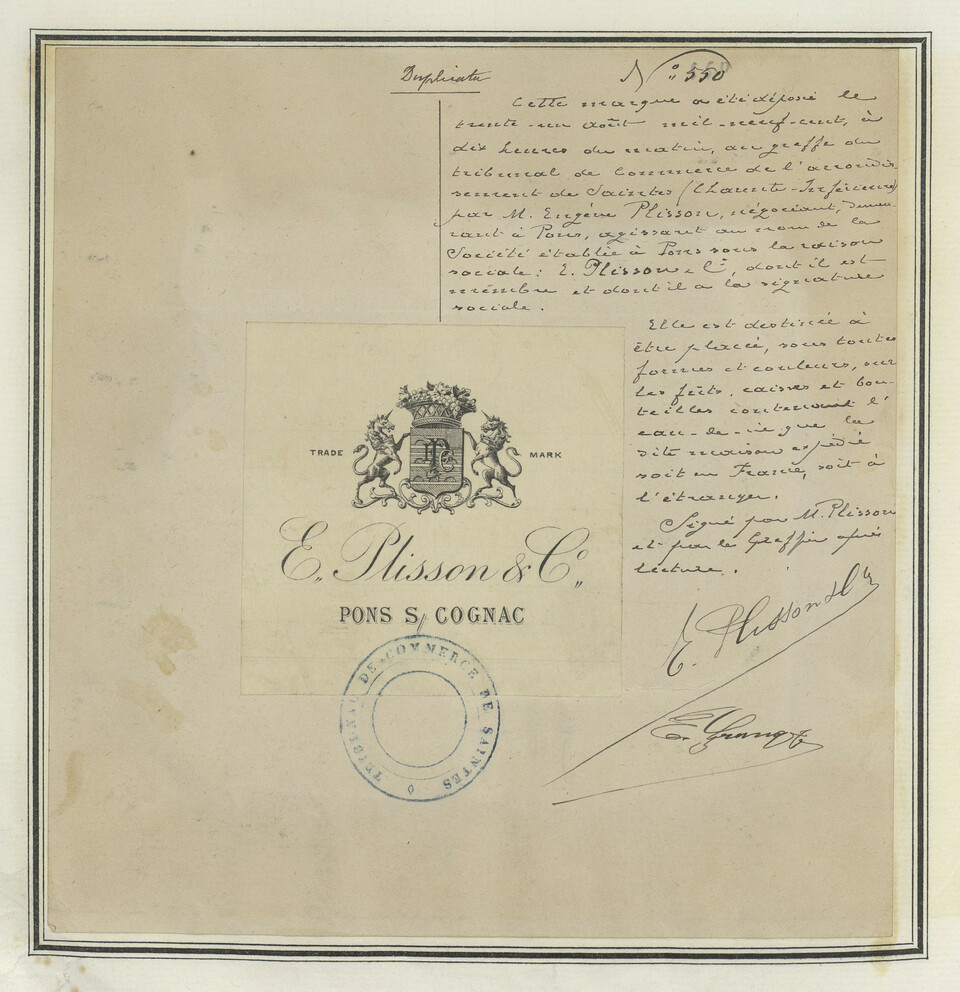 Duplicata
N° 550
Cette marque a été déposée le
trente-un août mil-neuf-cent, à
dix heures du matin, au greffe du
tribunal de Commerce de l'arrondis-
sement de Saintes (Charente-Inférieure)
par M. Eugène Plisson, négociant, demeu-
rant à Pons, agissant au nom de la
Société établie à Pons sous la raison
sociale: E. Plisson & Cie, dont il est
membre et dont il a la signature
sociale.
Elle est destinée à
être placée, sous toutes
formes et couleurs, sur
les fûts, caisses et bou-
teilles contenant l'
eau-de-vie que la
dite maison expédie
soit en France, soit à
l'étranger.
Signé par M. Plisson
et par le Greffier après
lecture.
TRADE MARK
E. Plisson & Co
PONS S/ COGNAC
E. Plisson & Cie
TRIBUNAL DE COMMERCE DE SAINTES